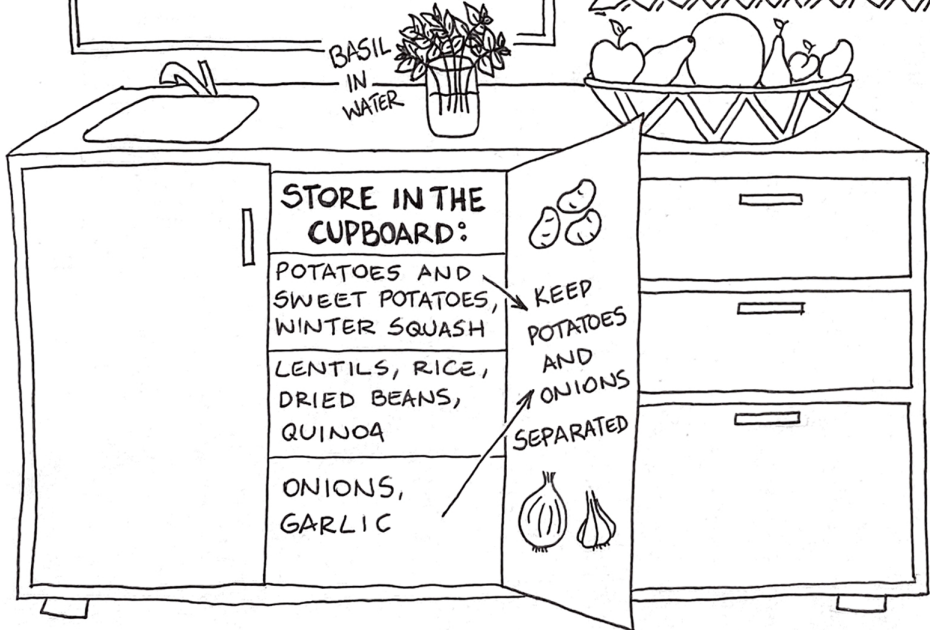 BASIL
IN
WATER
STORE IN THE
CUPBOARD:
POTATOES AND
SWEET POTATOES,
WINTER SQUASH
LENTILS, RICE,
DRIED BEANS,
QUINOA
ONIONS,
GARLIC
KEEP
POTATOES
AND
ONIONS
SEPARATED